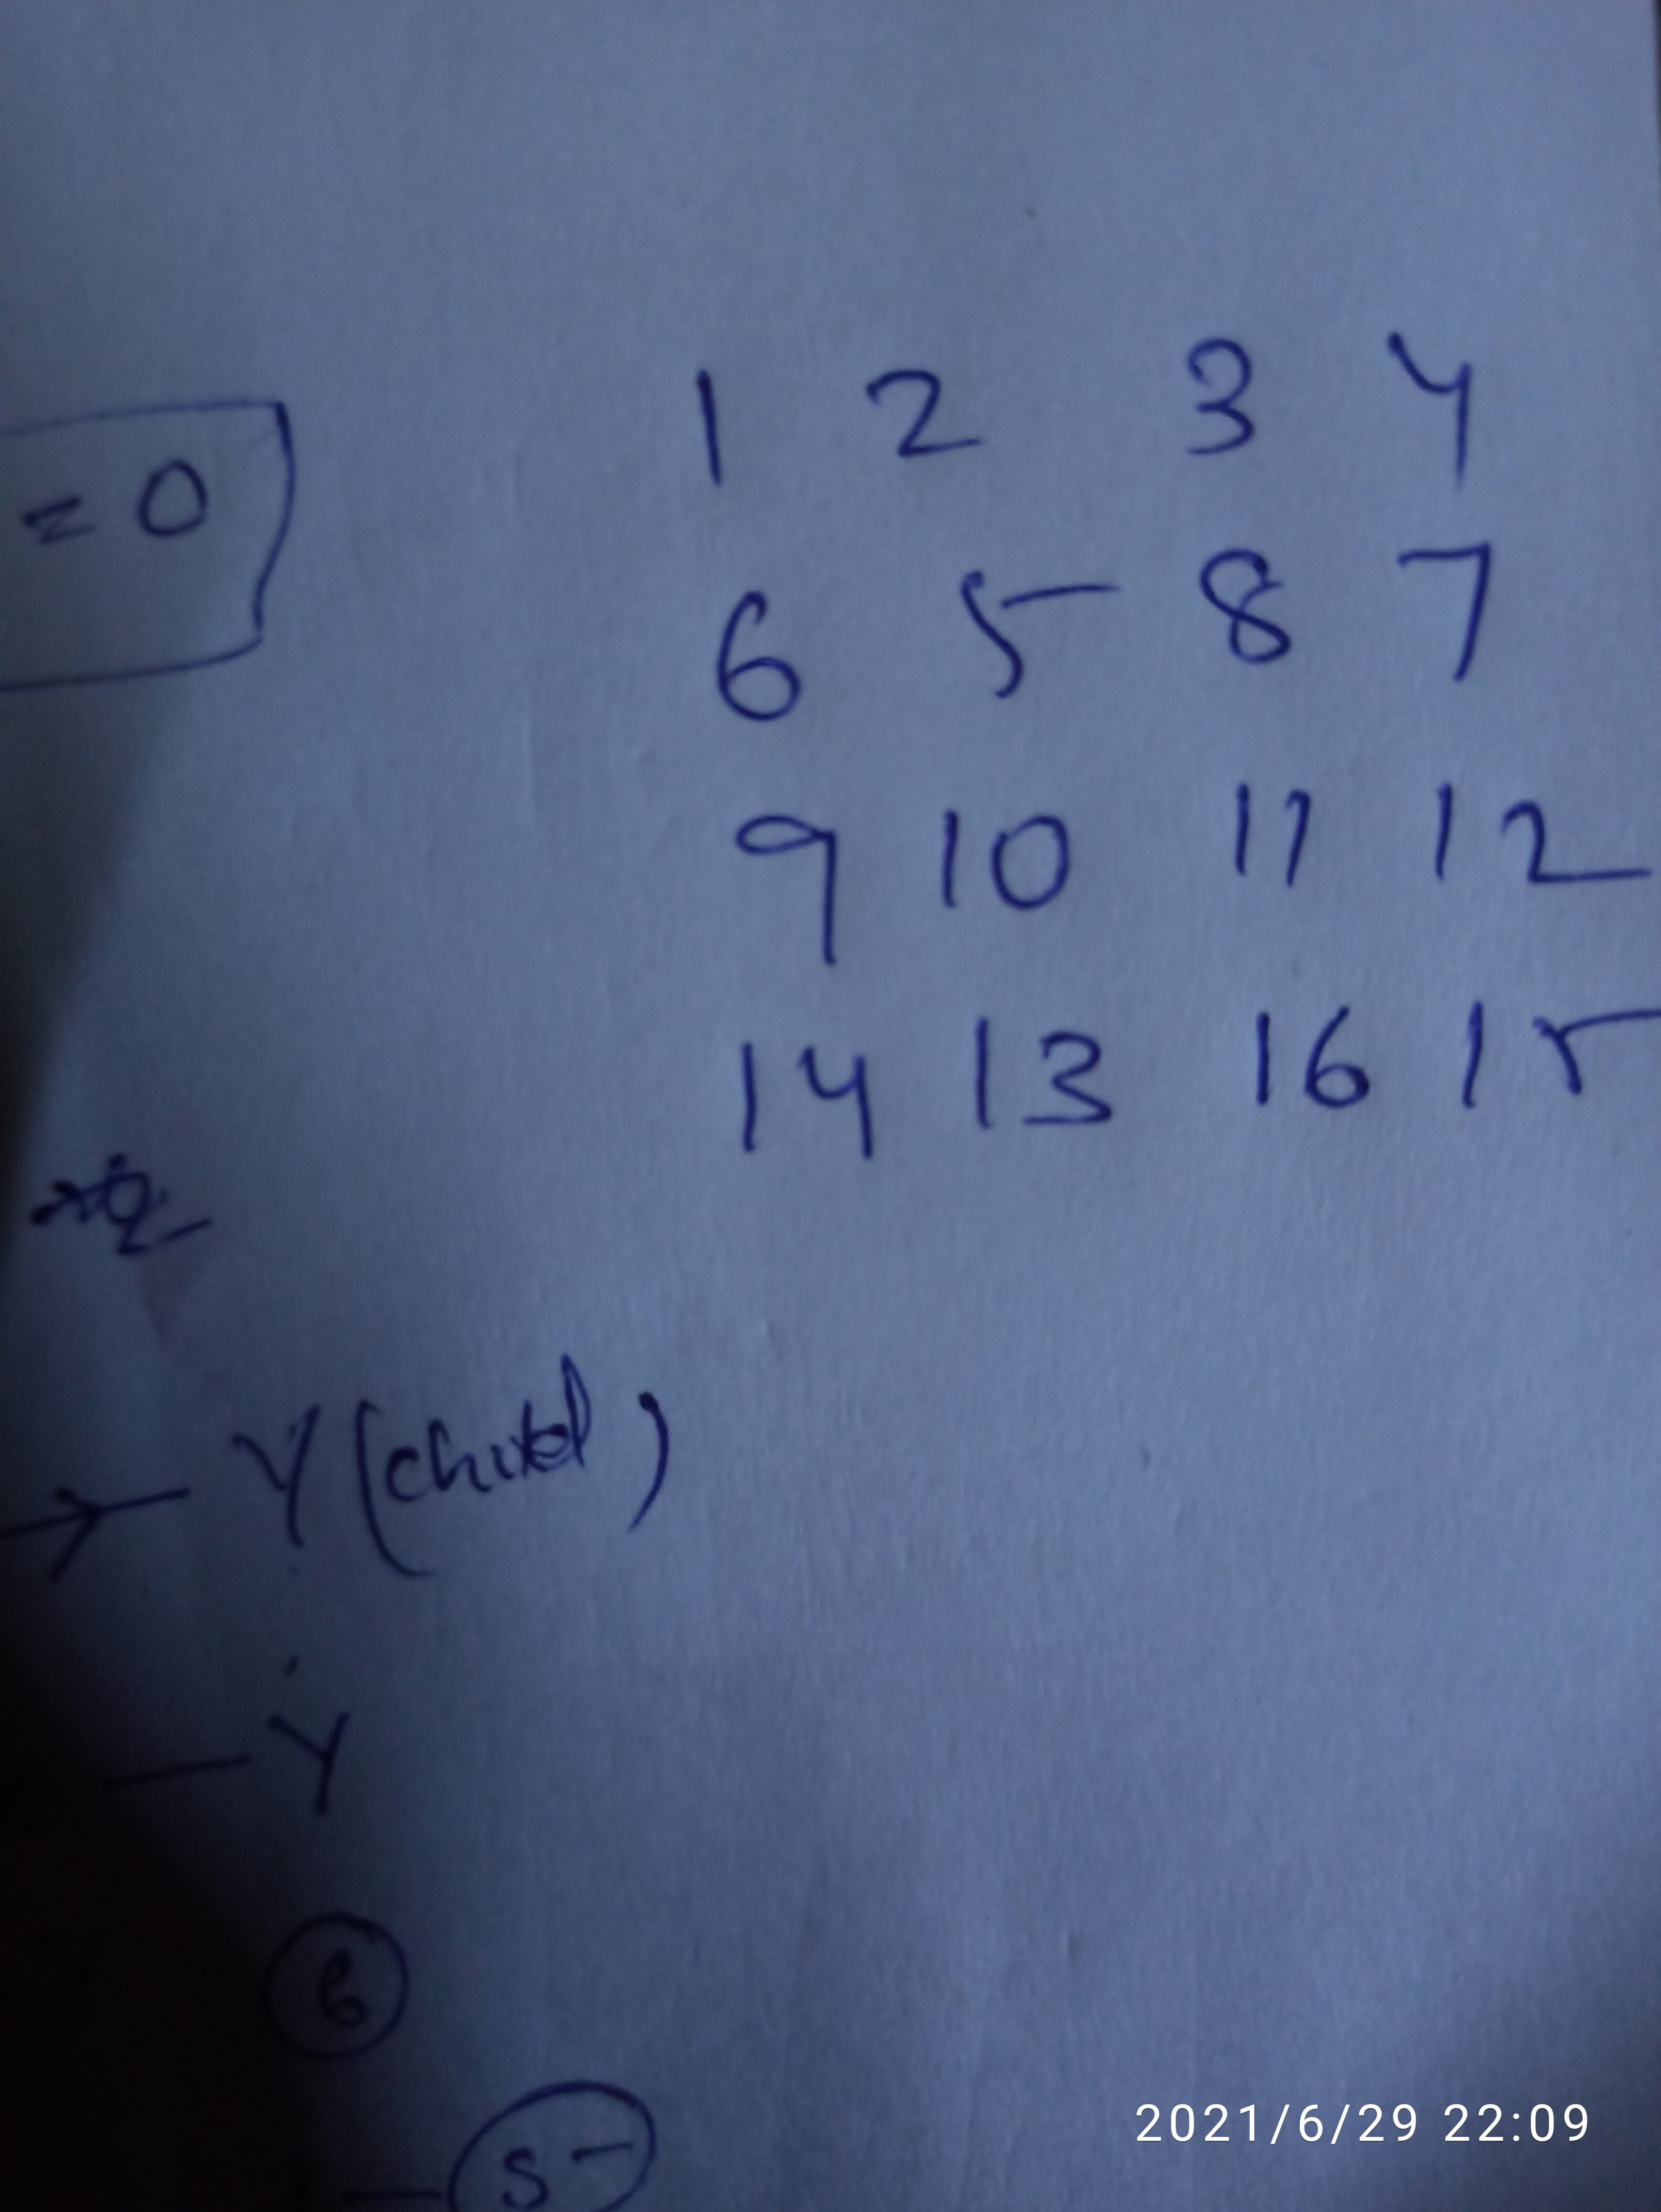 = 0
1 2 3 4
6 5 8 7
9 10 11 12
14 13 16 15
Y (child)
Y
6
5
2021/6/29 22:09